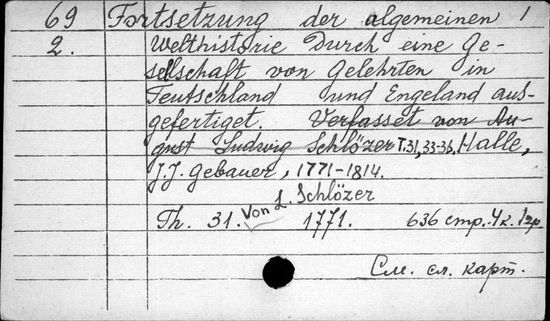 69 Fortsetzung der algemeinen 1
2. Welthistorie Durch eine Ge-
sellschaft von Gelehrten in
Teutschland und Engeland aus-
gefertiget. Verfasset von Au-
gust Ludwig Schlözer T.31,33-36. Halle,
J.J. Gebauer, 1771-1814.
Th. 31. Von L. Schlözer 1771. 636 стр. 4 к. 1 гр
См. сл. карт.